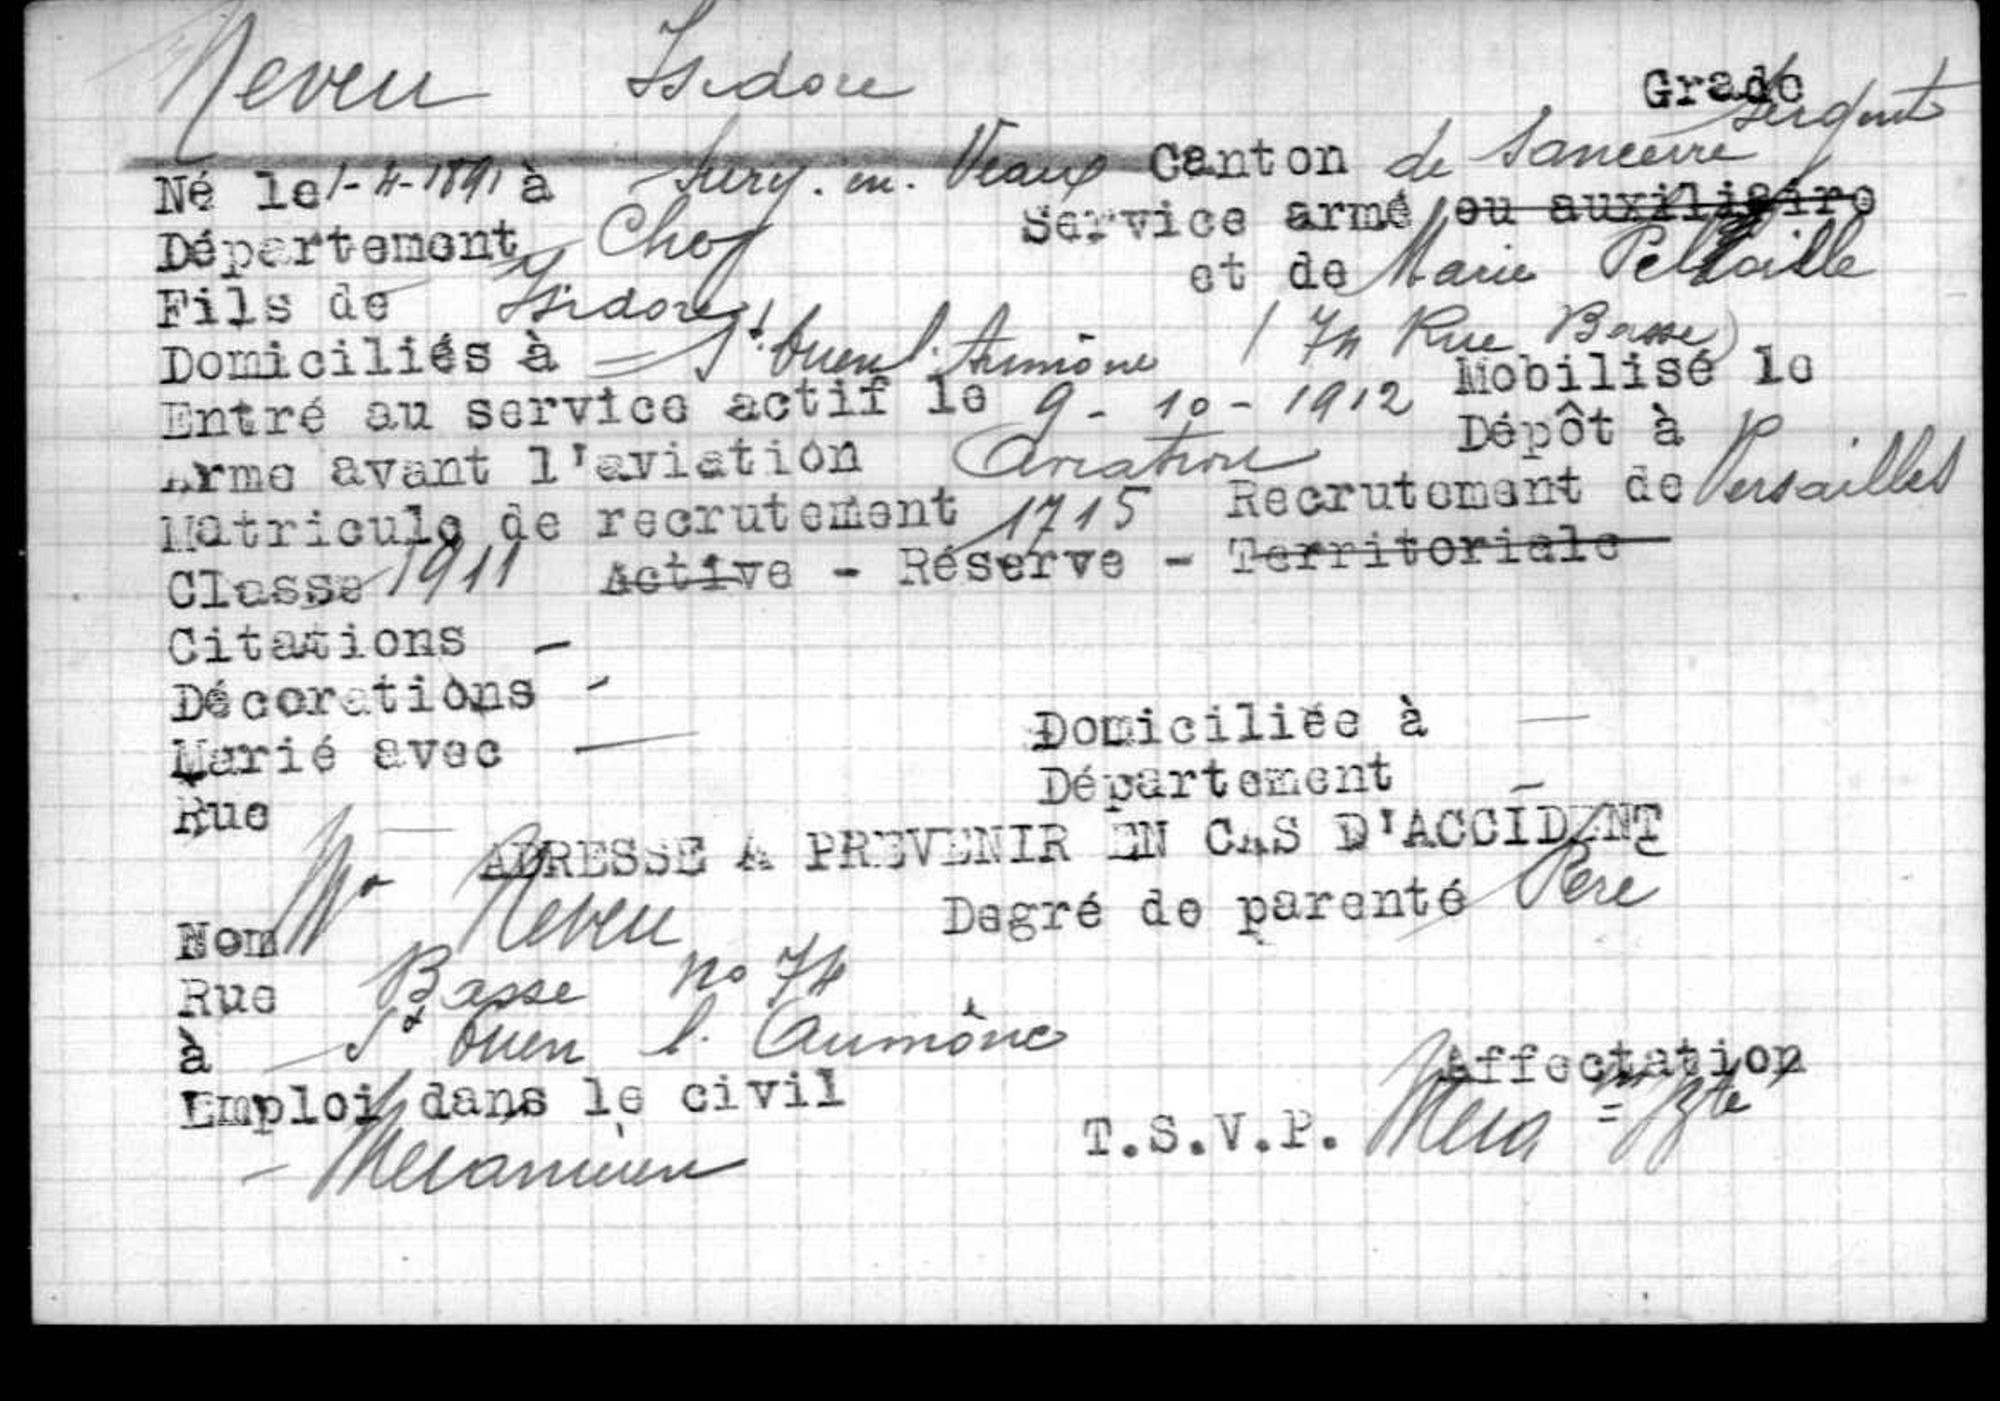 Neveu Isidore Grade Sergent
Né le 1-4-1891 à Sury. en. Veaux Canton de Sancerre
Département Cher Service armé ou auxiliaire
Fils de Isidore et de Marie
Domiciliés à St. Ouen l. Aumône (74 Rue Basse)
Entré au service actif le 9-10-1912 Mobilisé le
Arme avant l'aviation Aviation Dépôt à
Matricule de recrutement 1715 Recrutement de Versailles
Classe 1911 Active - Réserve - Territoriale
Citations -
Décorations -
Marié avec — Domiciliée à —
Rue — Département —
ADRESSE A PREVENIR EN CAS D'ACCIDENT
Nom Mr Neveu Degré de parenté Père
Rue Basse no 74
à St Ouen l. Aumône
Emploi dans le civil Affectation
Mécanicien T.S.V.P.